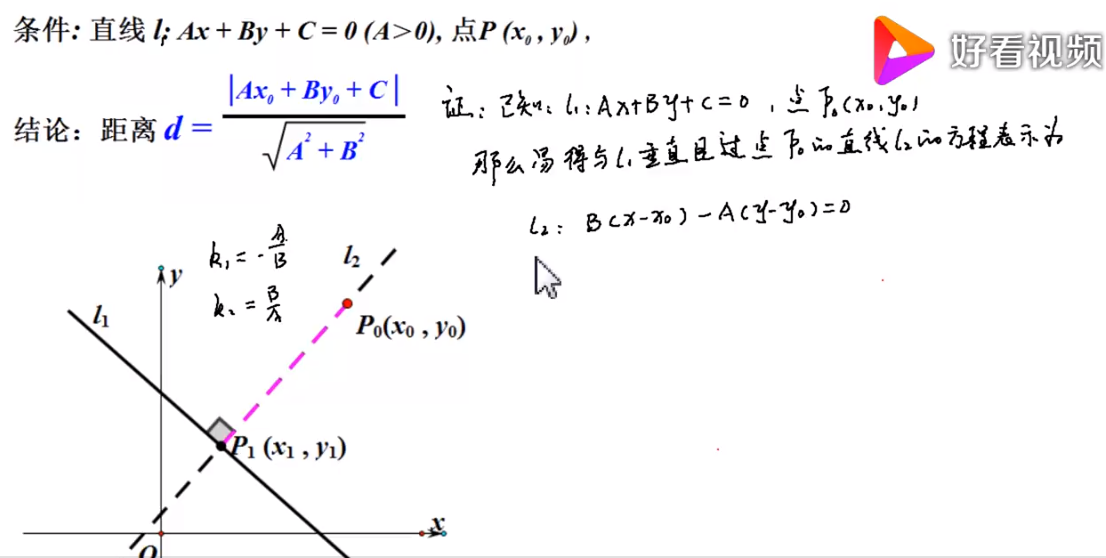 条件: 直线 l₁: Ax + By + C = 0 (A>0), 点P (x₀ , y₀) ,
好看视频
结论：距离 d = |Ax₀ + By₀ + C| / √(A² + B²)
证：已知：l₁：Ax+By+C=0，点P₀(x₀,y₀)
那么易得与l₁垂直且过点P₀的直线l₂的方程表示为
l₂：B(x-x₀)-A(y-y₀)=0
k₁ = -A/B
k₂ = B/A
l₂
y
l₁
P₀(x₀ , y₀)
P₁ (x₁ , y₁)
x
O